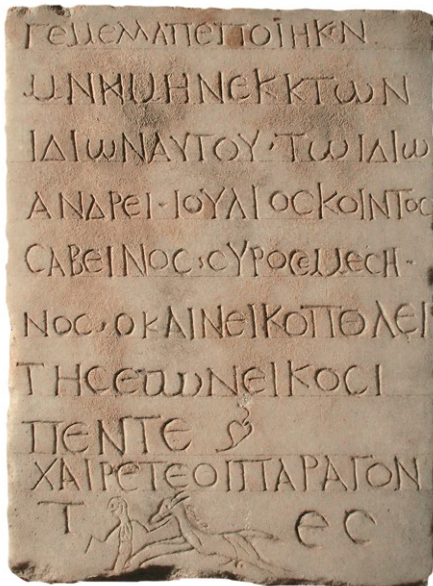 ΓΕΜΕΛΛΑΠΕΠΟΙΗΚΝ
ΜΝΗΜΗΝΕΚΚΤΩΝ
ΙΔΙΩΝΑΥΤΟΥ·ΤΩΙΔΙΩ
ΑΝΔΡΕΙ·ΙΟΥΛΙΟϹΚΟΙΝΤΟϹ
ϹΑΒΕΙΝΟϹ·ϹΥΡΟϹΜΕϹΗ·
ΝΟϹ·ΟΚΑΙΝΕΙΚΟΠΟΛΕΙ
ΤΗϹΕΤΩΝΕΙΚΟϹΙ
ΠΕΝΤΕ
ΧΑΙΡΕΤΕΟΙΠΑΡΑΓΟΝ
Τ ΕϹ